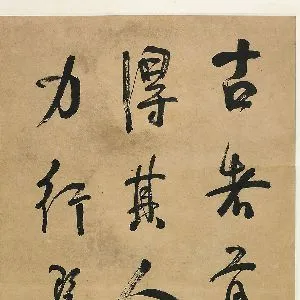 古者
得其人
力行